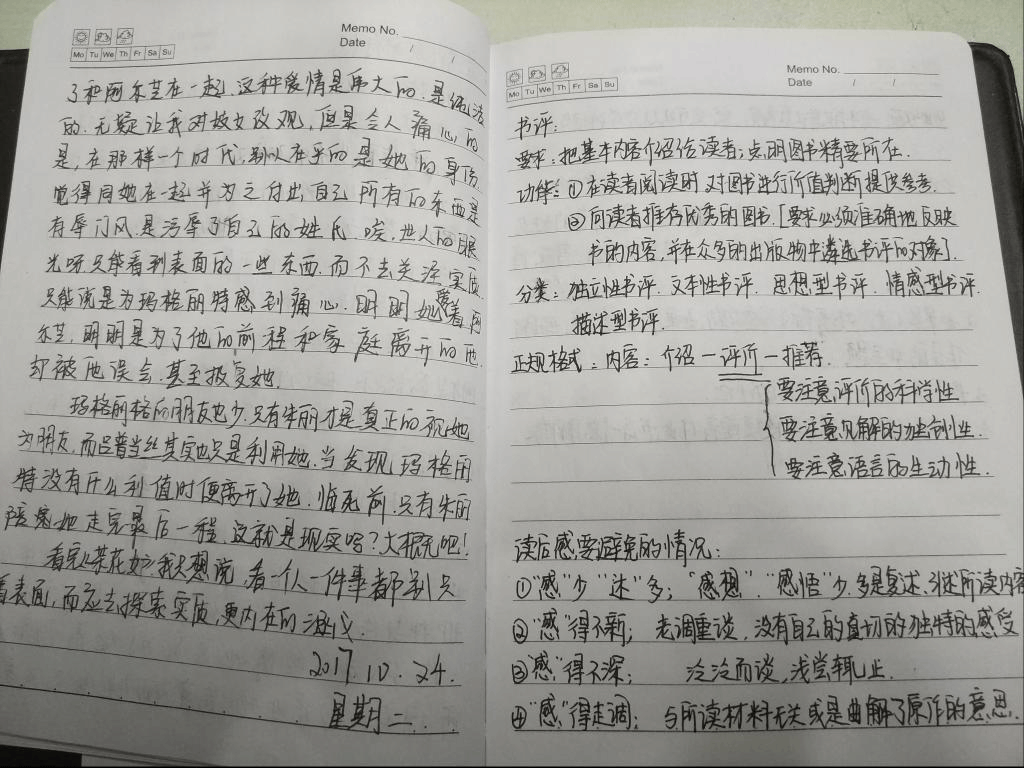 Memo No.
Date / /
Mo Tu We Th Fr Sa Su
了和阿尔芒在一起,这种爱情是伟大的,是纯洁
的.无疑让我对妓女改观,但是令人痛心的
是,在那样一个时代,别人在乎的是她的身份.
觉得同她在一起并为之付出自己所有的东西是
有辱门风.是污辱了自己的姓氏.唉,世人的眼
光呀只能看到表面的一些东西.而不去关注实质.
只能说是为玛格丽特感到痛心.明明她爱着阿
尔芒,明明是为了他的前程和家庭离开的他
却被他误会.甚至报复她.
玛格丽格的朋友也少.只有朱丽才是真正的视她
为朋友,而吕普当丝其实也只是利用她.当发现玛格丽
特没有什么利值时便离开了她.临死前.只有朱丽
陪着她走完最后一程.这就是现实吗?大概是吧!
看完《茶花女》我只想说,看一个人一件事都别只
看表面,而应去探索实质,更内在的涵义.
2017.10.24.
星期二.
Memo No.
Date / /
Mo Tu We Th Fr Sa Su
书评:
要求:把基本内容介绍给读者;点明图书精要所在.
功能:①在读者阅读时,对图书进行价值判断提供参考.
②向读者推荐优秀的图书.[要求必须准确地反映
书的内容,并在众多的出版物中遴选书评的对象].
分类:独立性书评.文本性书评.思想型书评.情感型书评.
描述型书评.
正规格式:内容:介绍—评价—推荐.
要注意评价的科学性.
要注意见解的独创性.
要注意语言的生动性.
读后感要避免的情况:
①"感"少"述"多;"感想"."感悟"少.多是复述.引述所读内容
②"感"得不新;老调重谈,没有自己的真切的独特的感受
③"感"得不深;泛泛而谈,浅尝辄止.
④"感"得走调:与所读材料无关或是曲解了原作的意思.